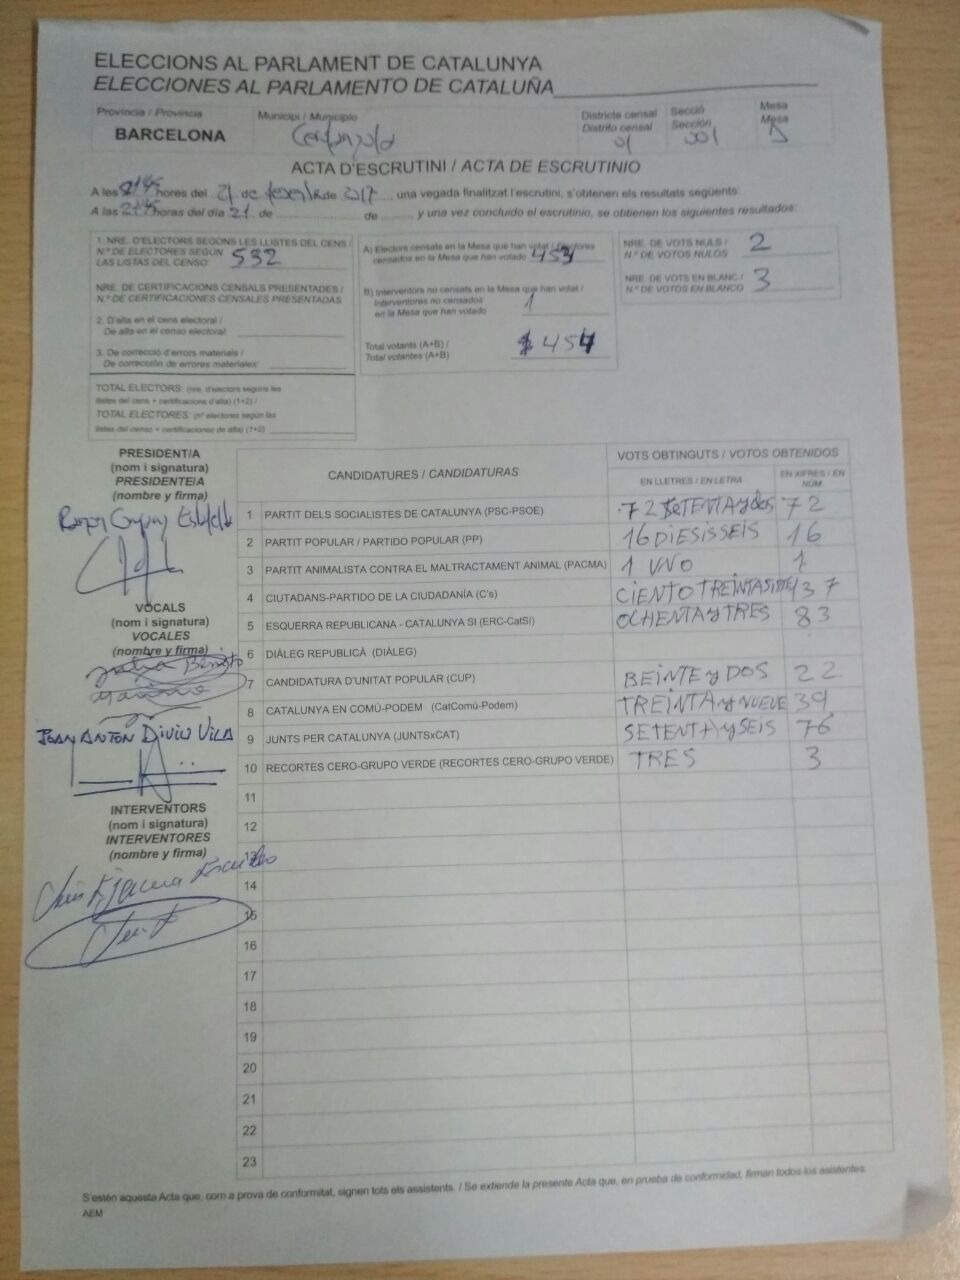 ELECCIONS AL PARLAMENT DE CATALUNYA
ELECCIONES AL PARLAMENTO DE CATALUÑA
Província / Provincia
BARCELONA
Municipi / Municipio
Districte censal
Distrito censal
01
Secció
Sección
001
Mesa
Mesa
ACTA D'ESCRUTINI / ACTA DE ESCRUTINIO
A les 21'45 hores del 21 de de 2017, una vegada finalitzat l'escrutini, s'obtenen els resultats següents:
A las 21'45 horas del día 21 de de y una vez concluido el escrutinio, se obtienen los siguientes resultados:
1. NRE. D'ELECTORS SEGONS LES LLISTES DEL CENS /
N.º DE ELECTORES SEGÚN
LAS LISTAS DEL CENSO 532
NRE. DE CERTIFICACIONS CENSALS PRESENTADES /
N.º DE CERTIFICACIONES CENSALES PRESENTADAS
2. D'alta en el cens electoral /
De alta en el censo electoral:
3. De correcció d'errors materials /
De corrección de errores materiales:
TOTAL ELECTORS: (nre. d'electors segons les
llistes del cens + certificacions d'alta) (1+2) /
TOTAL ELECTORES: (nº electores según las
listas del censo + certificaciones de alta) (1+2)
A) Electors censats en la Mesa que han votat / Electores
censados en la Mesa que han votado 453
B) Interventors no censats en la Mesa que han votat /
Interventores no censados
en la Mesa que han votado 1
Total votants (A+B) /
Total votantes (A+B) 454
NRE. DE VOTS NULS /
N.º DE VOTOS NULOS 2
NRE. DE VOTS EN BLANC /
N.º DE VOTOS EN BLANCO 3
PRESIDENT/A
(nom i signatura)
PRESIDENTE/A
(nombre y firma)
VOCALS
(nom i signatura)
VOCALES
(nombre y firma)
JOAN ANTON VILA
INTERVENTORS
(nom i signatura)
INTERVENTORES
(nombre y firma)
CANDIDATURES / CANDIDATURAS
VOTS OBTINGUTS / VOTOS OBTENIDOS
EN LLETRES / EN LETRA
EN XIFRES / EN NÚM.
1 PARTIT DELS SOCIALISTES DE CATALUNYA (PSC-PSOE) 72 SETENTA y dos 72
2 PARTIT POPULAR / PARTIDO POPULAR (PP) 16 DIESISSEIS 16
3 PARTIT ANIMALISTA CONTRA EL MALTRACTAMENT ANIMAL (PACMA) 1 UNO 1
4 CIUTADANS-PARTIDO DE LA CIUDADANÍA (C's) CIENTO TREINTA SIETE 137
5 ESQUERRA REPUBLICANA - CATALUNYA SI (ERC-CatSí) OCHENTA y TRES 83
6 DIÀLEG REPUBLICÀ (DIÀLEG)
7 CANDIDATURA D'UNITAT POPULAR (CUP) BEINTE y DOS 22
8 CATALUNYA EN COMÚ-PODEM (CatComú-Podem) TREINTA y NUEVE 39
9 JUNTS PER CATALUNYA (JUNTSxCAT) SETENTA y SEIS 76
10 RECORTES CERO-GRUPO VERDE (RECORTES CERO-GRUPO VERDE) TRES 3
11
12
13
14
15
16
17
18
19
20
21
22
23
S'estén aquesta Acta que, com a prova de conformitat, signen tots els assistents. / Se extiende la presente Acta que, en prueba de conformidad, firman todos los asistentes.
AEM